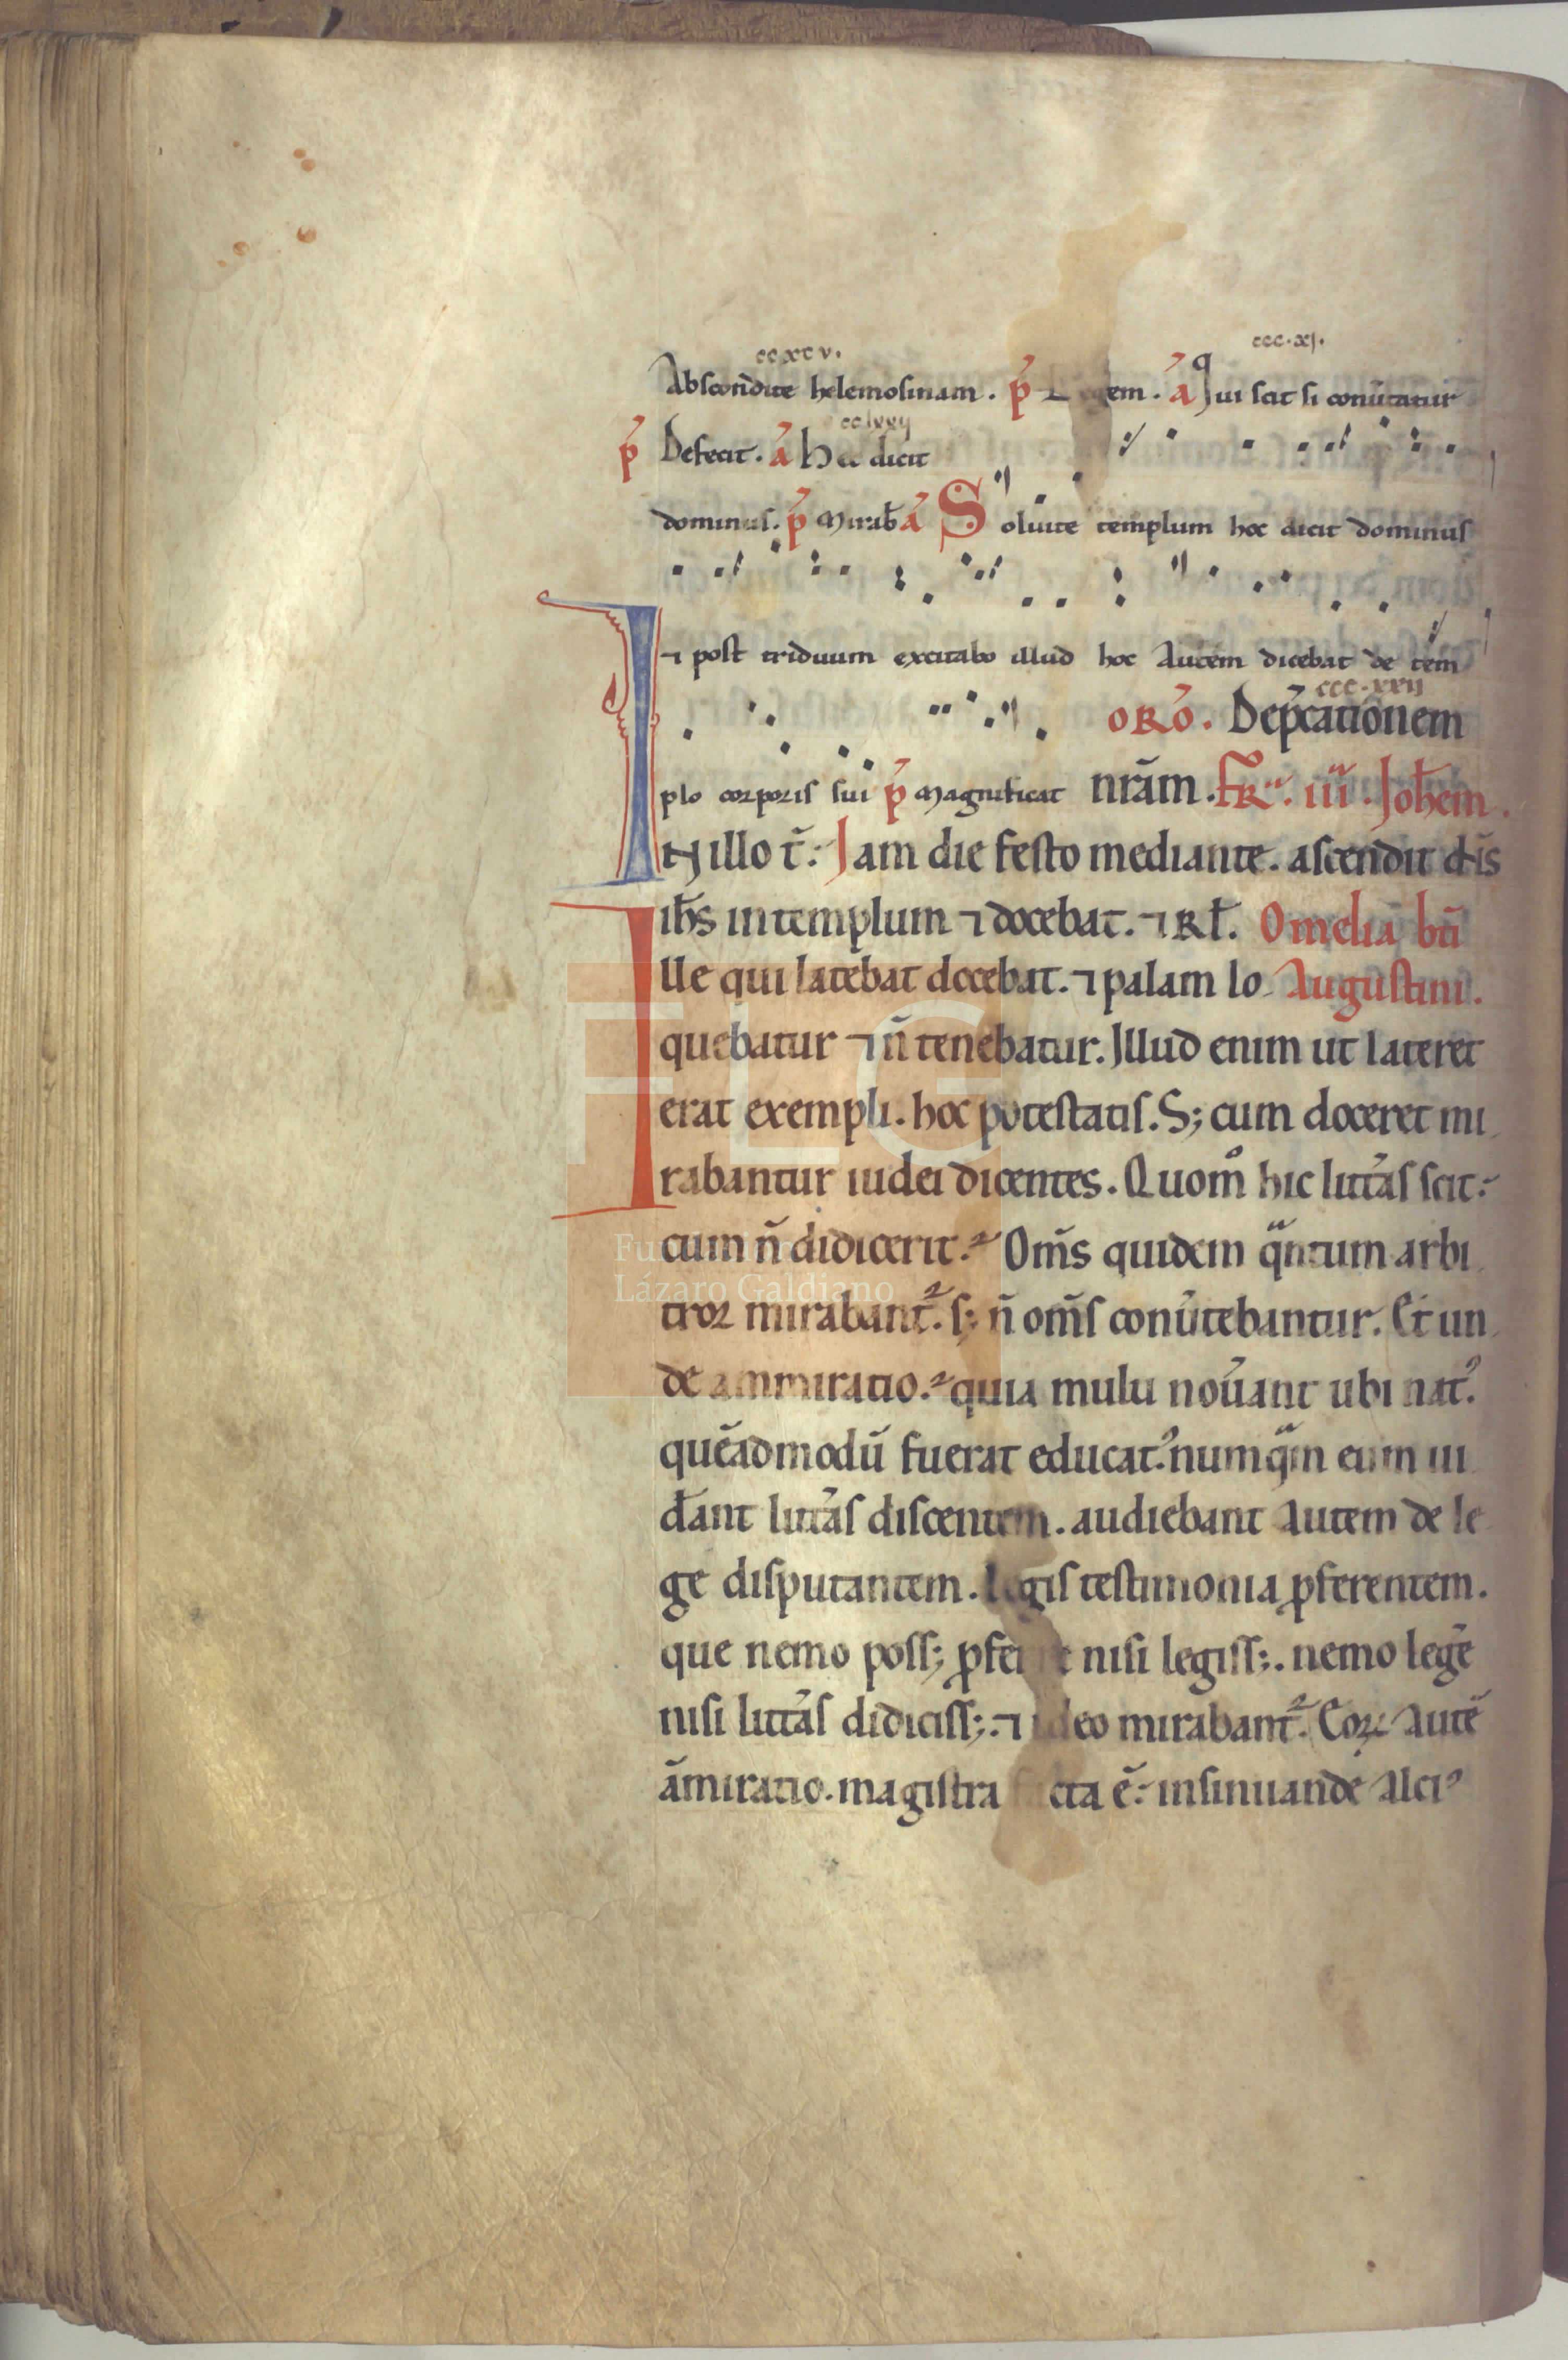 ccxcv. ccc.xj.
Abscondite helemosinam. p̄ L gem. a᷎ Qui scit si conu̅tatur
cclxxij
p̄ Defecit. a᷎ hec dicit
dominus. p̄ Mirab̄ a᷎ Soluite templum hoc dicit dominus
⁊ post triduum excitabo illud hoc autem dicebat de tem
ccc.xxij
oRō. Dep̄cationem
plo corporis sui p̄ Magnificat nr̄am. FR. iii. Joh̄em.
IN illo t̄. Jam die festo mediante. ascendit dn̄s
ih̄s in templum ⁊ docebat. ⁊ Rl̄. Omelia bt̄i
Ille qui latebat docebat. ⁊ palam lo Augustini.
quebatur ⁊ n̄ tenebatur. Illud enim ut lateret
erat exempli. hoc potestatis. S; cum doceret mi
rabantur iudei dicentes. Quom̊ hic litt̄as scit:
cum n̄ didicerit. Om̄s quidem qͣntum arbi
tror mirabant̄. s; n̄ om̄s conu̅tebantur. Et un
de ammiratio. quia multi nou̅ant ubi nat᾽.
quēadmodū fuerat educat᾽. numqͣm eum ui
d̄ant litt̄as discentem. audiebant autem de le
ge disputantem. Legis testimonia ꝓferentem.
que nemo poss; ꝓferret nisi legiss;. nemo legēt
nisi litt̄as didiciss;. ⁊ ideo mirabant̄. Eoꝝ autē
āmiratio. magistra facta ē. insinuande alci᾽
FLG
Fundación
Lázaro Galdiano